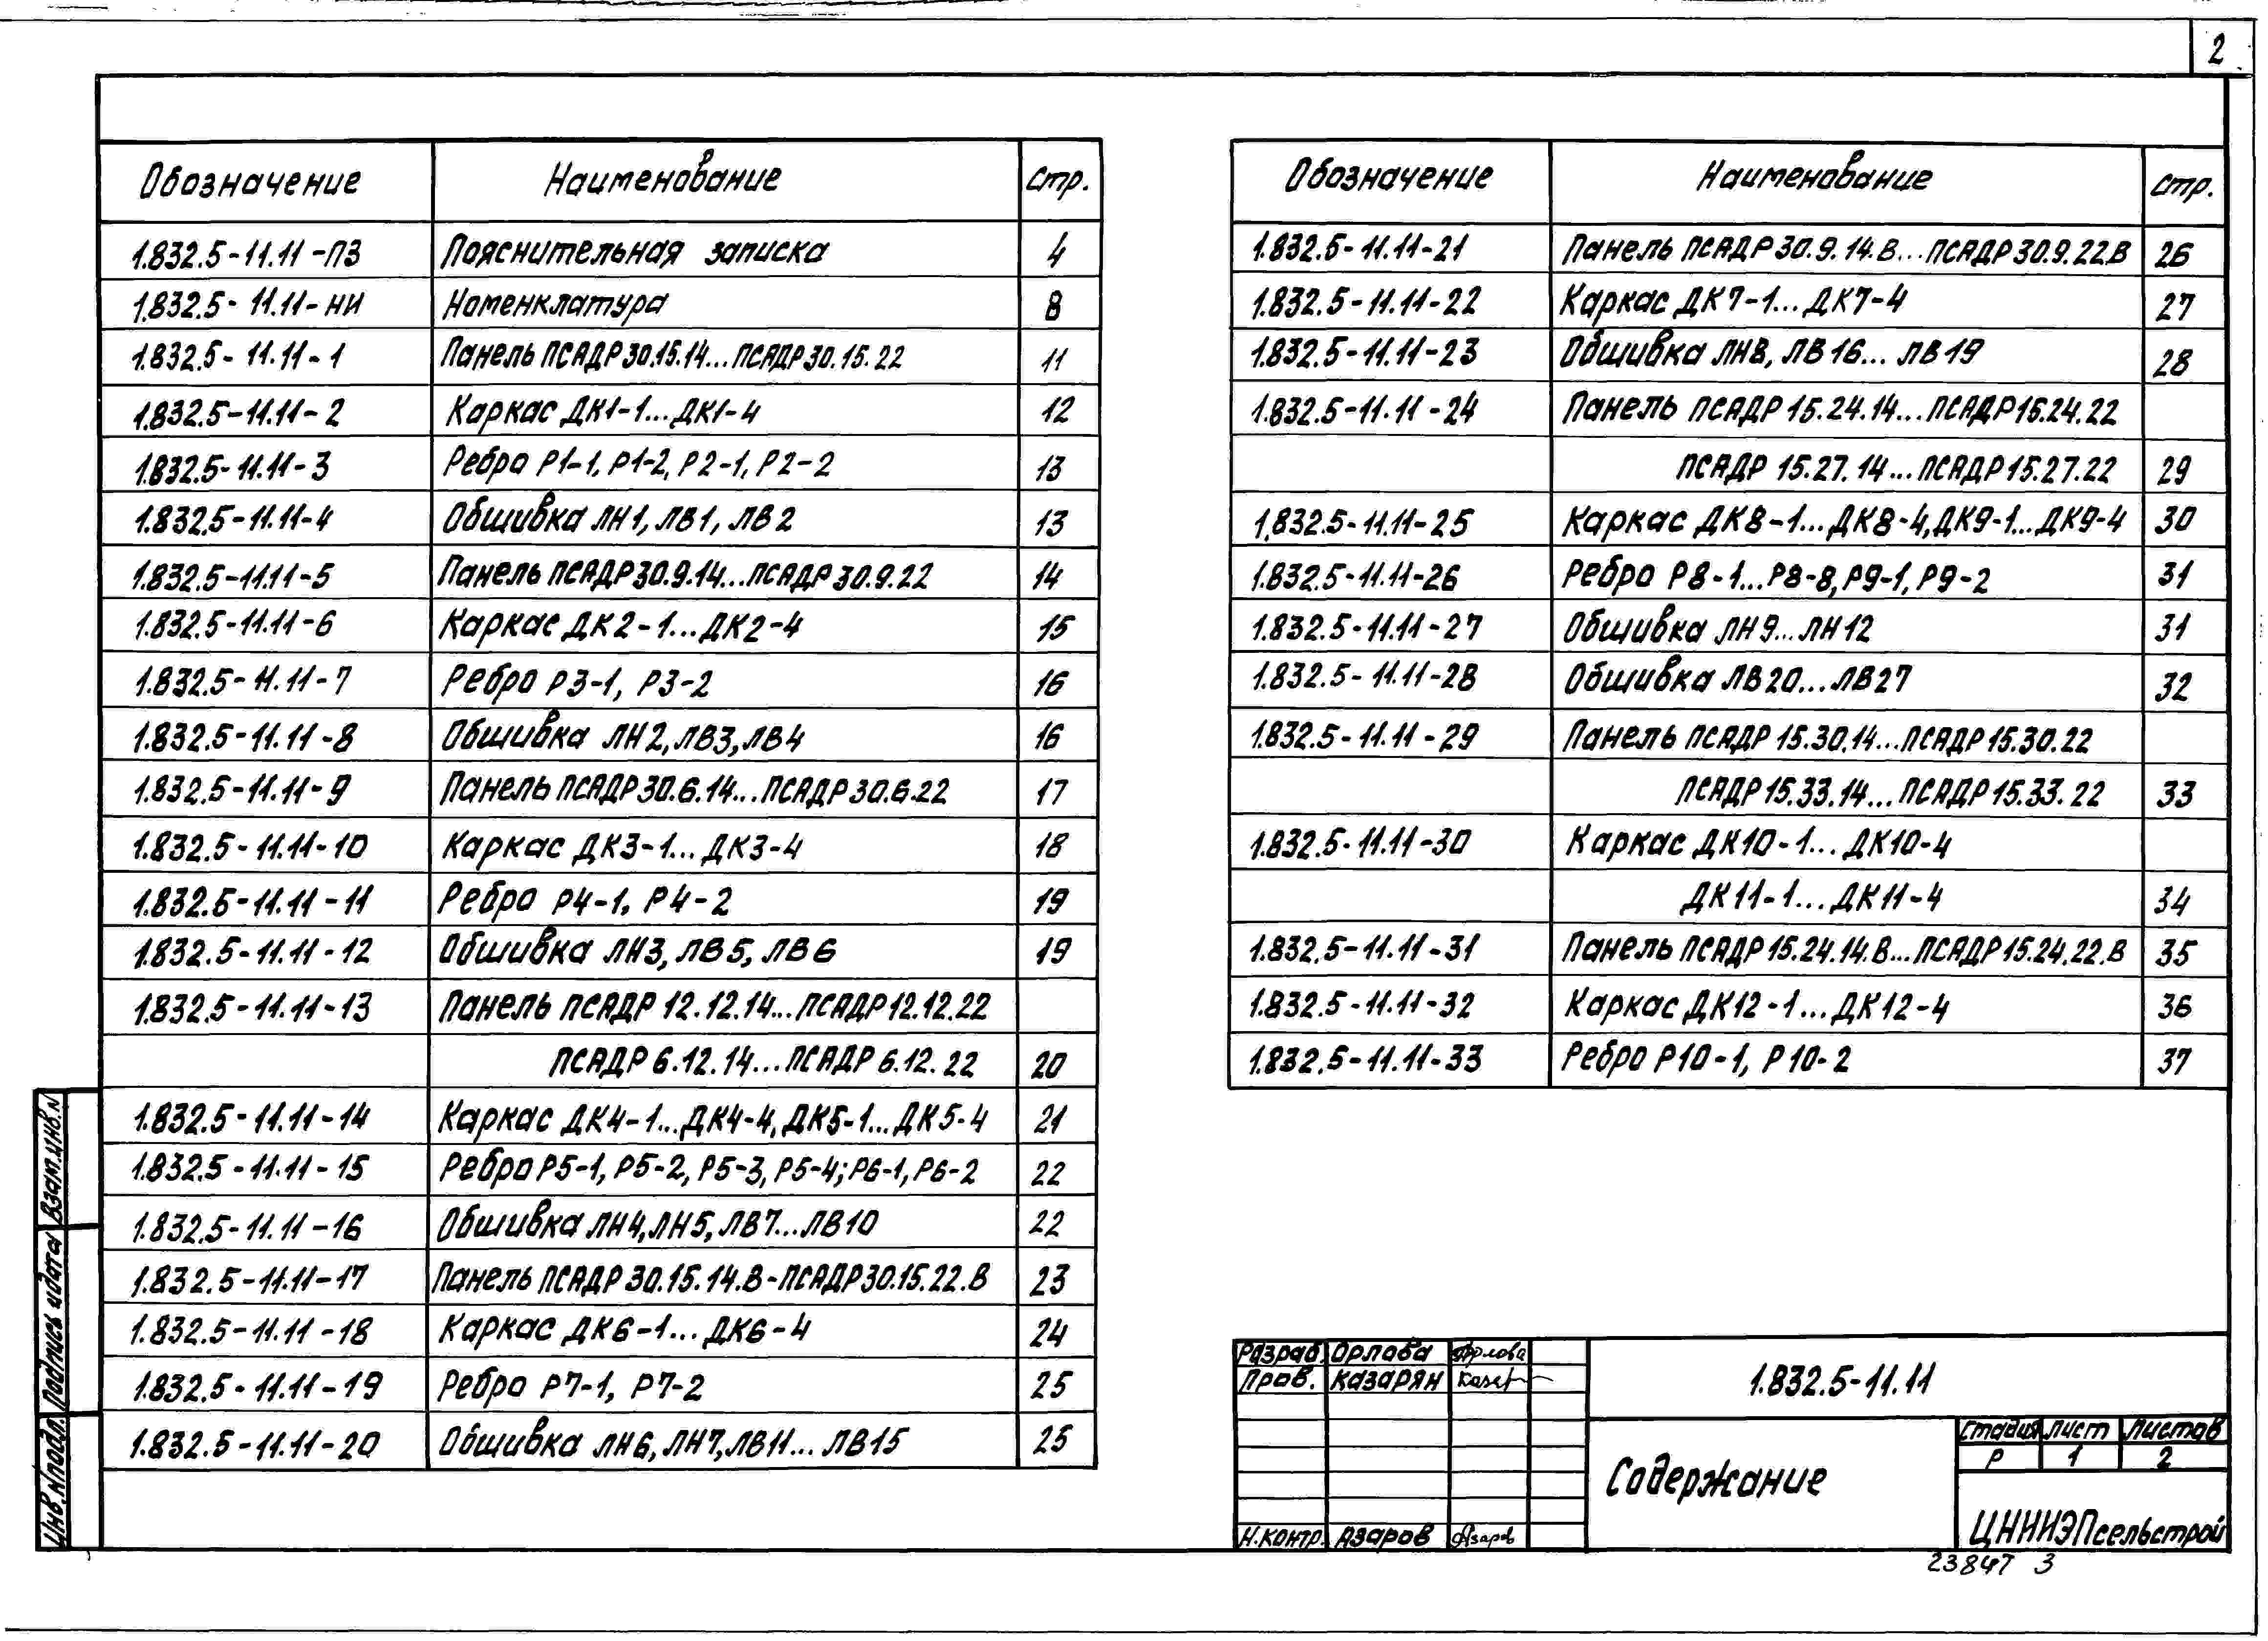 2
Обозначение Наименование Стр.
1.832.5-11.11-ПЗ Пояснительная записка 4
1.832.5-11.11-НИ Номенклатура 8
1.832.5-11.11-1 Панель ПСАДР30.15.14...ПСАДР30.15.22 11
1.832.5-11.11-2 Каркас ДК1-1...ДК1-4 12
1.832.5-11.11-3 Ребро Р1-1, Р1-2, Р2-1, Р2-2 13
1.832.5-11.11-4 Обшивка ЛН1, ЛВ1, ЛВ2 13
1.832.5-11.11-5 Панель ПСАДР30.9.14...ПСАДР30.9.22 14
1.832.5-11.11-6 Каркас ДК2-1...ДК2-4 15
1.832.5-11.11-7 Ребро Р3-1, Р3-2 16
1.832.5-11.11-8 Обшивка ЛН2, ЛВ3, ЛВ4 16
1.832.5-11.11-9 Панель ПСАДР30.6.14...ПСАДР30.6.22 17
1.832.5-11.11-10 Каркас ДК3-1...ДК3-4 18
1.832.5-11.11-11 Ребро Р4-1, Р4-2 19
1.832.5-11.11-12 Обшивка ЛН3, ЛВ5, ЛВ6 19
1.832.5-11.11-13 Панель ПСАДР 12.12.14...ПСАДР12.12.22
ПСАДР 6.12.14...ПСАДР 6.12.22 20
1.832.5-11.11-14 Каркас ДК4-1...ДК4-4, ДК5-1...ДК5-4 21
1.832.5-11.11-15 Ребро Р5-1, Р5-2, Р5-3, Р5-4; Р6-1, Р6-2 22
1.832.5-11.11-16 Обшивка ЛН4, ЛН5, ЛВ7...ЛВ10 22
1.832.5-11.11-17 Панель ПСАДР30.15.14.В-ПСАДР30.15.22.В 23
1.832.5-11.11-18 Каркас ДК6-1...ДК6-4 24
1.832.5-11.11-19 Ребро Р7-1, Р7-2 25
1.832.5-11.11-20 Обшивка ЛН6, ЛН7, ЛВ11...ЛВ15 25
Обозначение Наименование Стр.
1.832.5-11.11-21 Панель ПСАДР30.9.14.В...ПСАДР30.9.22.В 26
1.832.5-11.11-22 Каркас ДК7-1...ДК7-4 27
1.832.5-11.11-23 Обшивка ЛН8, ЛВ16...ЛВ19 28
1.832.5-11.11-24 Панель ПСАДР 15.24.14...ПСАДР15.24.22
ПСАДР 15.27.14...ПСАДР15.27.22 29
1.832.5-11.11-25 Каркас ДК8-1...ДК8-4, ДК9-1...ДК9-4 30
1.832.5-11.11-26 Ребро Р8-1...Р8-8, Р9-1, Р9-2 31
1.832.5-11.11-27 Обшивка ЛН9...ЛН12 31
1.832.5-11.11-28 Обшивка ЛВ20...ЛВ27 32
1.832.5-11.11-29 Панель ПСАДР 15.30.14...ПСАДР15.30.22
ПСАДР15.33.14...ПСАДР15.33.22 33
1.832.5-11.11-30 Каркас ДК10-1...ДК10-4
ДК11-1...ДК11-4 34
1.832.5-11.11-31 Панель ПСАДР15.24.14.В...ПСАДР15.24.22.В 35
1.832.5-11.11-32 Каркас ДК12-1...ДК12-4 36
1.832.5-11.11-33 Ребро Р10-1, Р10-2 37
Инв.Nподл. Подпись и дата Взам.инв.N
Разраб. Орлова Орлова
Пров. Казарян
Н.контр. Азаров Азаров
1.832.5-11.11
Содержание
Стадия Лист Листов
Р 1 2
ЦНИИЭПсельстрой
23847 3